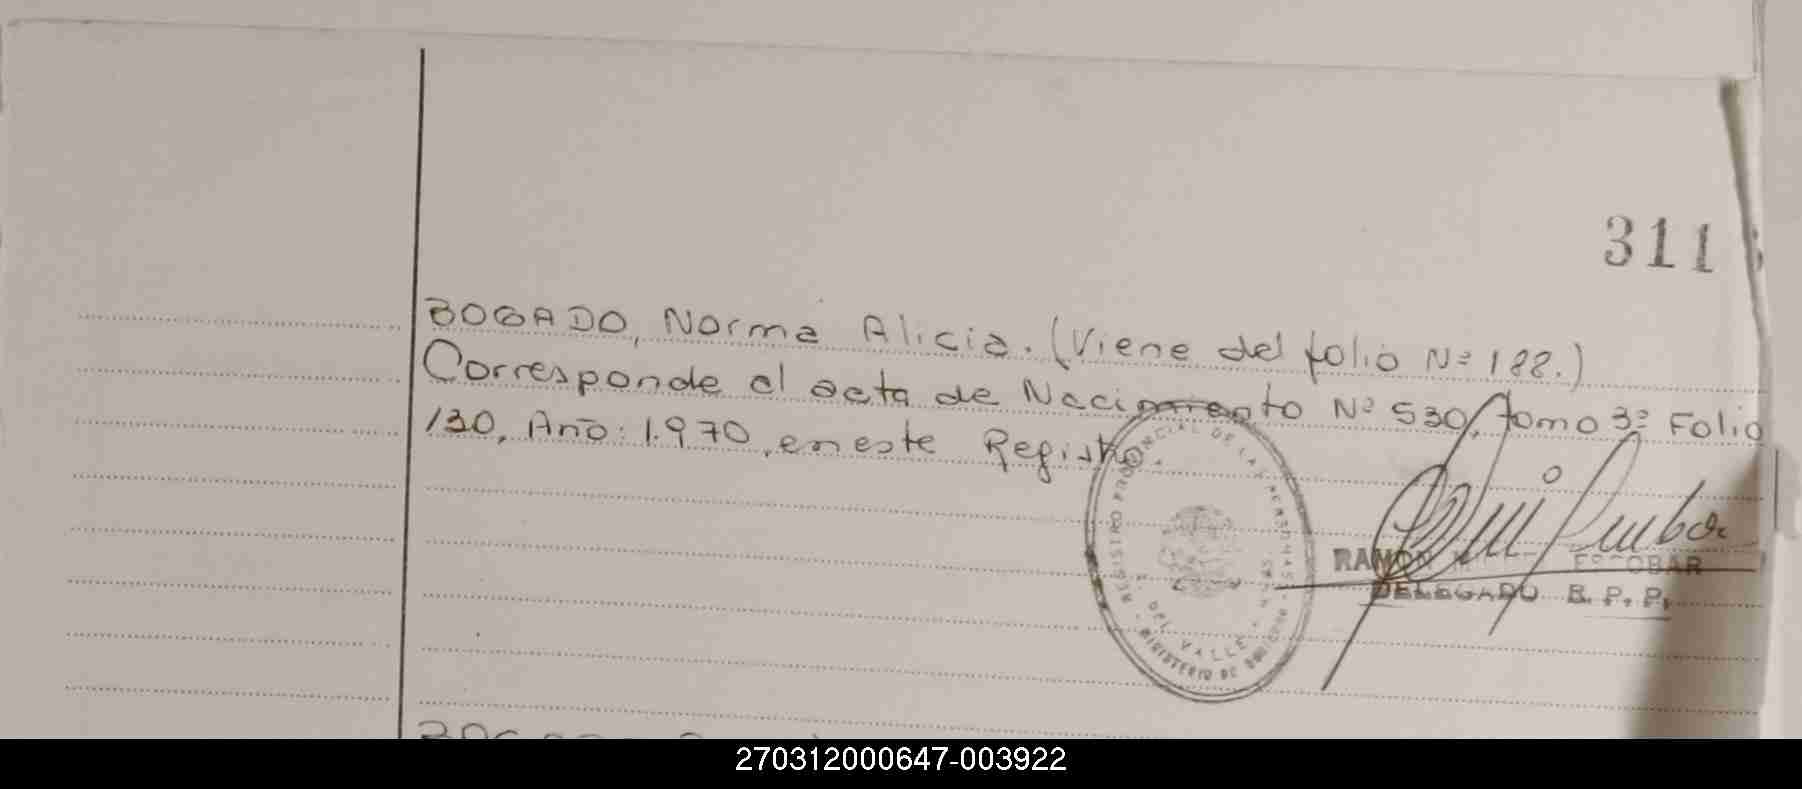 311
BOGADO, Norma Alicia. (Viene del folio Nº 188.)
Corresponde al acta de Nacimiento Nº 530, tomo 3º Folio
130, Año: 1.970, en este Registro
REGISTRO PROVINCIAL DE LAS PERSONAS
MINISTERIO DE
DEL VALLE
RAMON ESCOBAR
DELEGADO R. P. P.
270312000647-003922